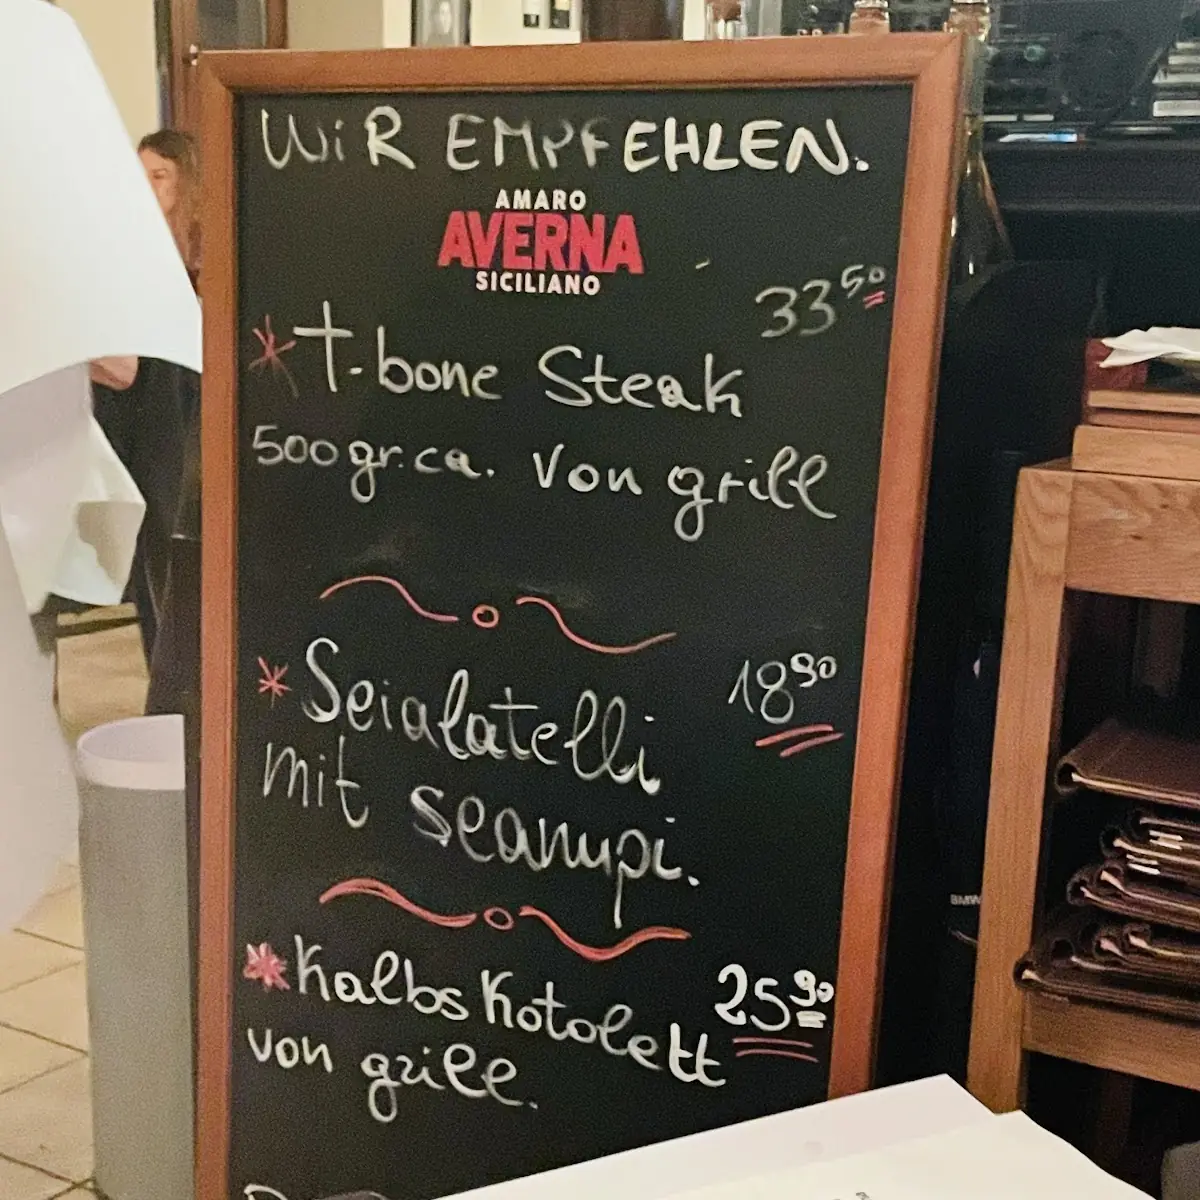 WiR EMPFEHLEN.
AMARO
AVERNA
SICILIANO
33 50
* T-bone Steak
500gr.ca. Von grill
* Seialatelli 18 90
mit scampi.
* Kalbs Kotolett 25 90
von grill.
BMW